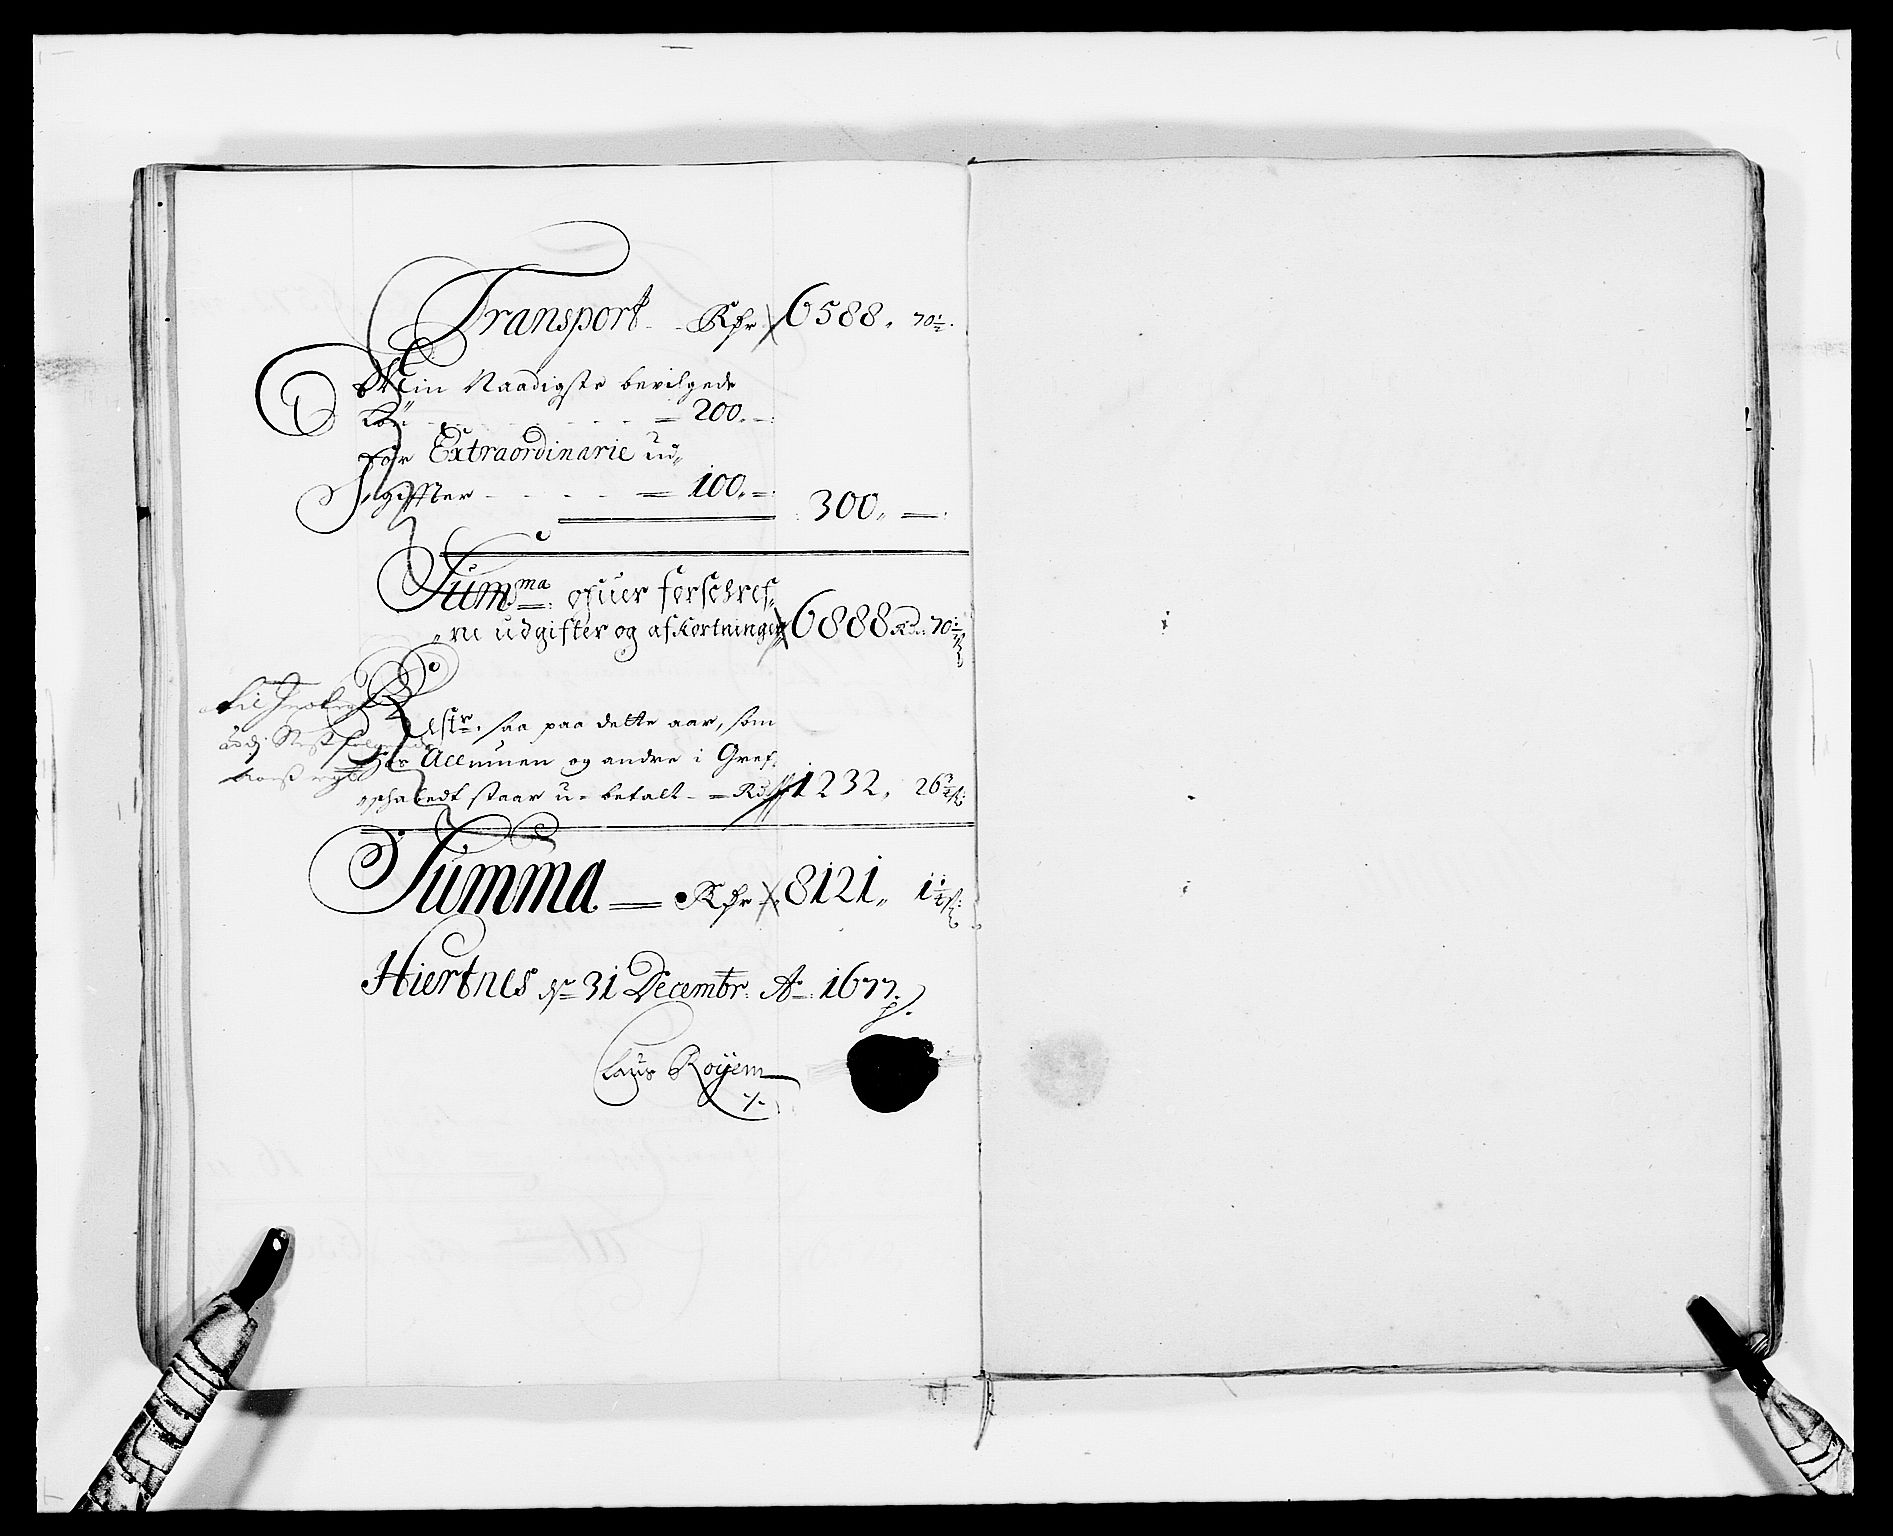 Transport - Rdr 6588. 70½.
Min Naadigste bevilgede
Løn - - - - = 200. -
For Extraordinarie ud=
giffter - - - - = 100. -
300. =
Sum̅ma ofuer forschref=
ne udgifter og afkortninger 6888 Rd: 70½ s
til
Reste, saa paa dette aar, som
og andre i Gref=
schabedt staar u- betalt - = Rd 1232. 26¾ s:
Summa = Rdr 8121. 1¼ s:
Hiertnes dn 31 Decembr: Ao: 1677.
Claus Röyem